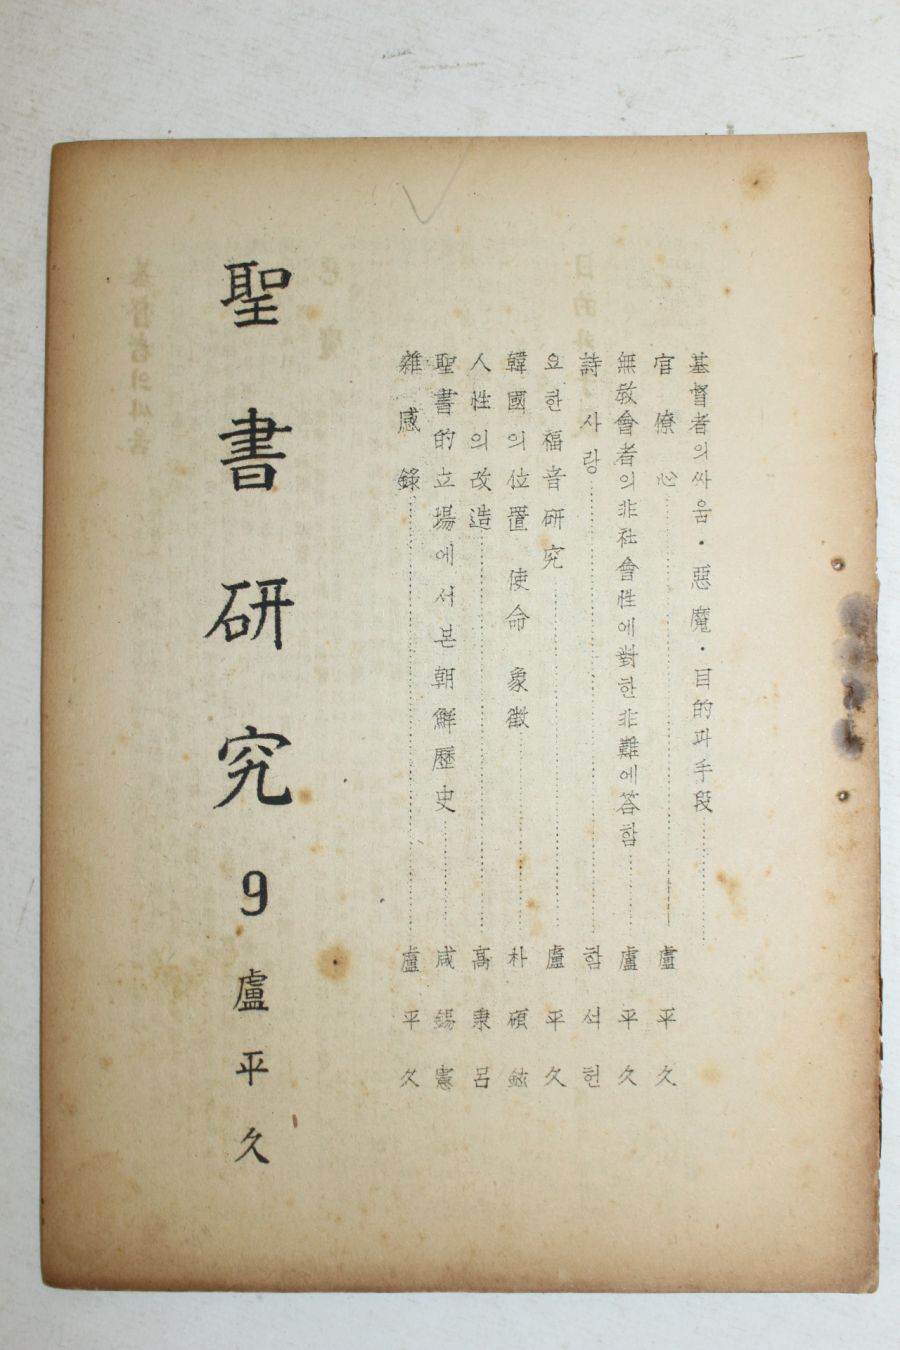 基督者의싸움·惡魔·目的과手段
官僚心 盧平久
無敎會者의非社會性에對한非難에答함 盧平久
詩 사랑 함석헌
요한福音硏究 盧平久
韓國의位置 使命 象徵 朴碩鉉
人性의改造 高秉呂
聖書的立場에서본朝鮮歷史 咸錫憲
雜感錄 盧平久
聖書硏究 9 盧平久